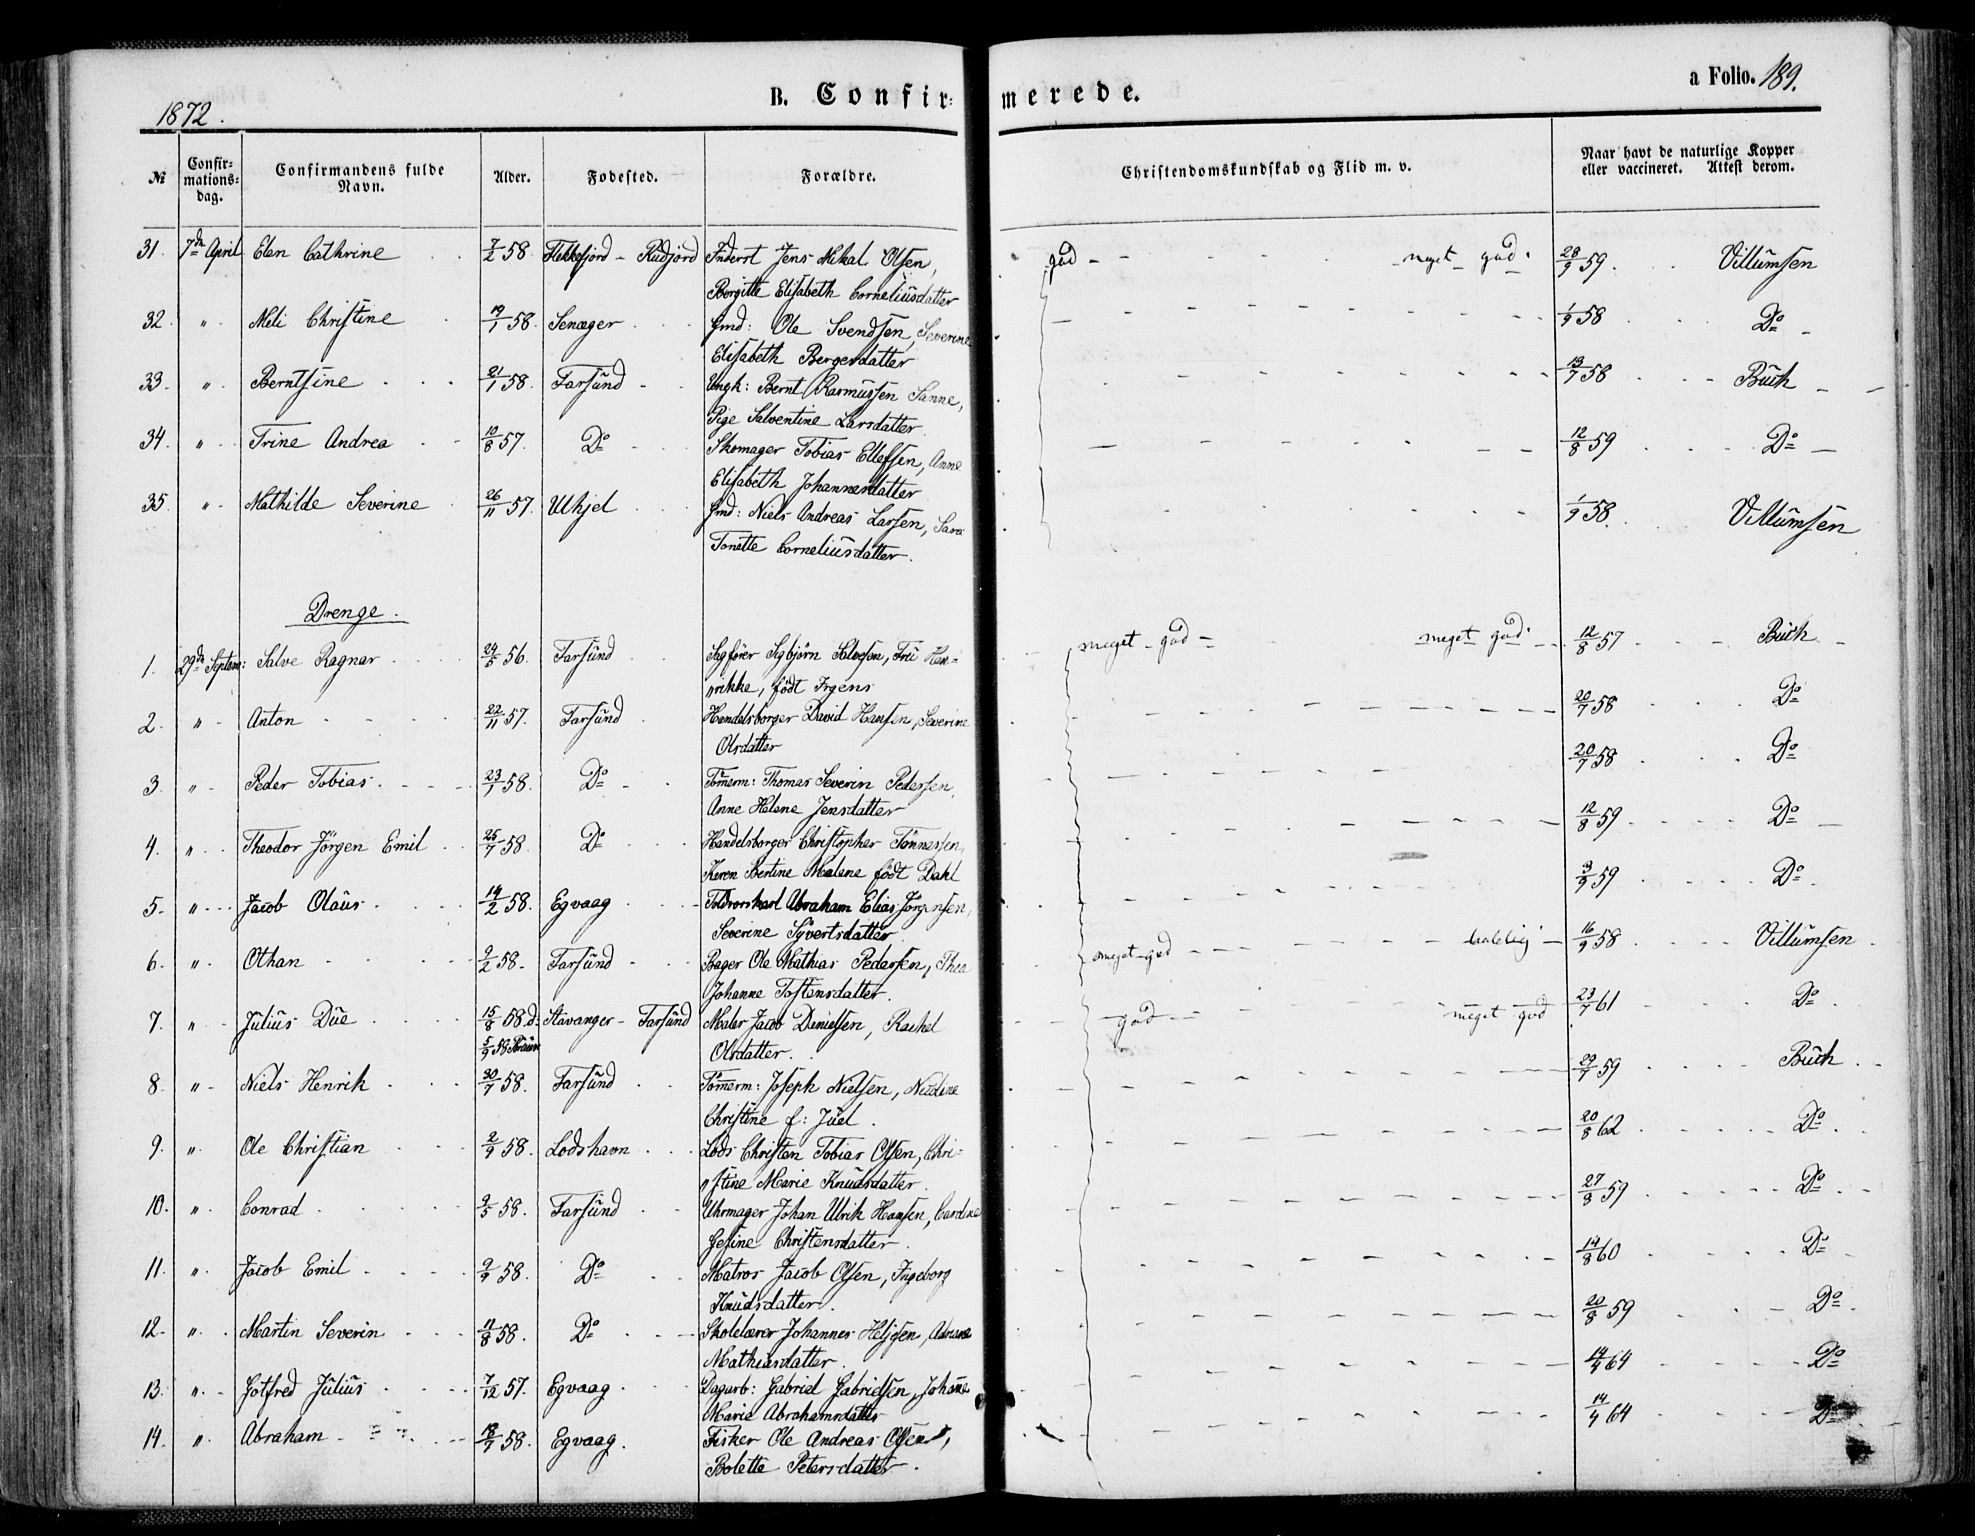 1872. B. Confir- merede. a Folio. 189.
№ Confir-mations-dag. Confirmandens fulde Navn. Alder. Fødested. Forældre. Christendomskundskab og Flid m. v. Naar havt de naturlige Kopper eller vaccineret. Attest derom.
31. 7de April Elen Cathrine 7/2 58. Flekkefjord - Rudjord Inderst Jens Mikal Olsen, god - meget god. 28/9 59. Villumsen
Borgitte Elisabeth Corneliusdatter
32. " Meli Christine 19/1 58. Senæger Gmd: Ole Svendsen, Severine 1/9 58 Do
Elisabeth Bergersdatter
33. " Berntsine 21/1 58. Farsund Ungk: Bernt Rasmussen Sanne, 13/7 58 Buch
Pige Salventine Larsdatter
34. " Trine Andrea 10/8 57. Do Skomager Tobias Ellefsen, Anne 12/8 59 Do
Elisabeth Johannesdatter
35. " Mathilde Severine 26/11 57. Ulhjel Gmd: Niels Andreas Larsen, Sara 1/9 58. Villumsen
Tonette Corneliusdatter.
Drenge.
1. 29de Septem: Salve Ragnar 24/5 56. Farsund Sagfører Sigbjørn Salvesen, Fru Hen= meget god - meget god. 12/8 57 Buch
rikke, født Irgens
2. " Anton 22/11 57. Farsund Handelsborger David Hansen, Severine 20/7 58 Do
Olsdatter
3. " Peder Tobias. 23/1 58. Do Tømerm: Thomas Severin Pedersen, 20/7 58. Do
Anne Helene Jensdatter
4. " Theodor Jörgen Emil 25/7 58. Do Handelsborger Christopher Tønnessen, 12/8 59 Do
Karen Bertine Malene født Dahl
5. " Jacob Olaus 14/2 58. Egvaag Toldrorskarl Abraham Elias Jörgensen, 3/9 59 Do
Severine Syvertsdatter
6. " Othan 9/2 58. Farsund Bager Ole Mathias Pedersen, Thea meget god taalelig 16/9 58 Villumsen
Johanne Tostensdatter.
7. " Julius Due 15/8 58. d: Stavanger - Farsund Maler Jacob Danielsen, Rachel god meget god 23/7 61 Do
5/9 58 Olsdatter.
8. " Niels Henrik 30/7 58. Farsund Tømerm: Joseph Nielsen, Nicoline 29/7 59 Buch
Christine f: Juel.
9. " Ole Christian 2/9 58. Lodshavn Lods Christen Tobias Olsen, Chri- 20/8 62 Do
stine Marie Knudsdatter.
10. " Conrad 9/5 58. Farsund Uhrmager Johan Ulrik Hansen, Cardine 27/8 59 Do
Gesine Christensdatter.
11. " Jacob Emil 9/9 58. Do Matros Jacob Olsen, Ingeborg 14/8 60 Do
Knudsdatter.
12. " Martin Severin 11/8 58. Do Skolelærer Johannes Heljesen, 20/8 59 Do
Mathiasdatter.
13. " Gotfred Julius 7/12 57. Egvaag Dagarb: Gabriel Gabrielsen, Johanne 14/4 64 Do
Marie Abrahamsdatter
14. " Abraham 18/7 58. Egvaag. Fisker Ole Andreas Olsen, 14/4 64 Do
Bolette Petersdatter.